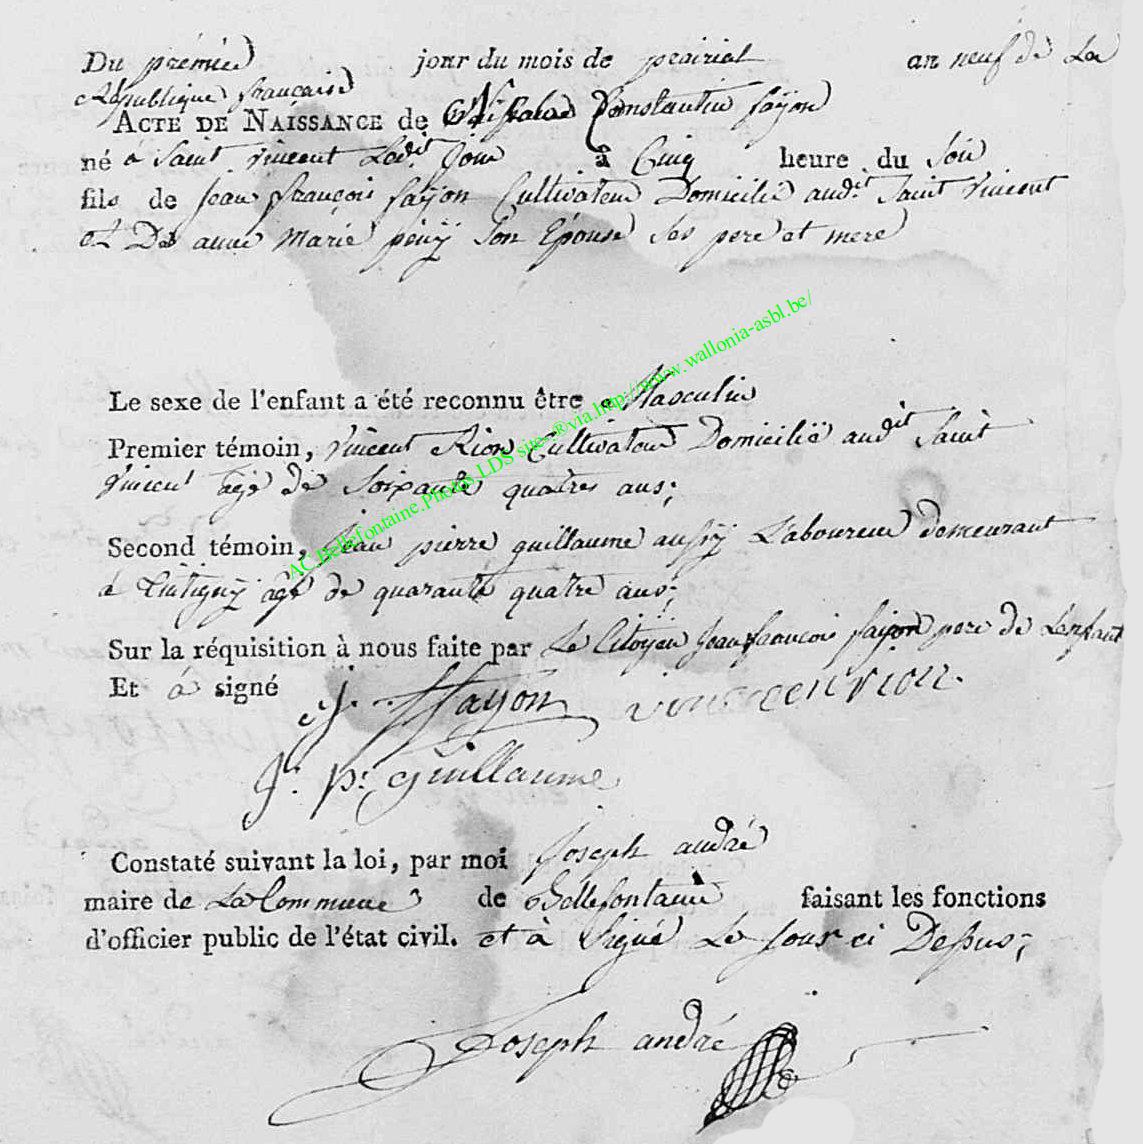 Du premier jour du mois de prairial an neuf de La
République française
ACTE DE NAISSANCE de Constantin fayon
né à Saint vincent Ledit Jour à Cinq heure du Soir
fils de jean françois fayon Cultivateur Domicilié audit Saint Vincent
Et De anne Marie Son Epouse Ses pere et mere
Le sexe de l'enfant a été reconnu être Masculin
Premier témoin, Vincent Rion Cultivateur Domicilié audit Saint
Vincent agé de Soixante quatres ans;
Second témoin, Jean pierre guillaume aussÿ Laboureur demeurant
à Tintignÿ agé de quarante quatre ans;
Sur la réquisition à nous faite par Le Citoyen Jean francois faÿon pere de Lenfant
Et à signé
J. f fayon vincent rion.
J. p. guillaume
Constaté suivant la loi, par moi Joseph andré
maire de La Commune de Bellefontaine faisant les fonctions
d'officier public de l'état civil. et à Signé Le Jour ci Dessus;
Joseph andré
AC.Bellefontaine.Photos.LDS site.®via.http://www.wallonia-asbl.be/